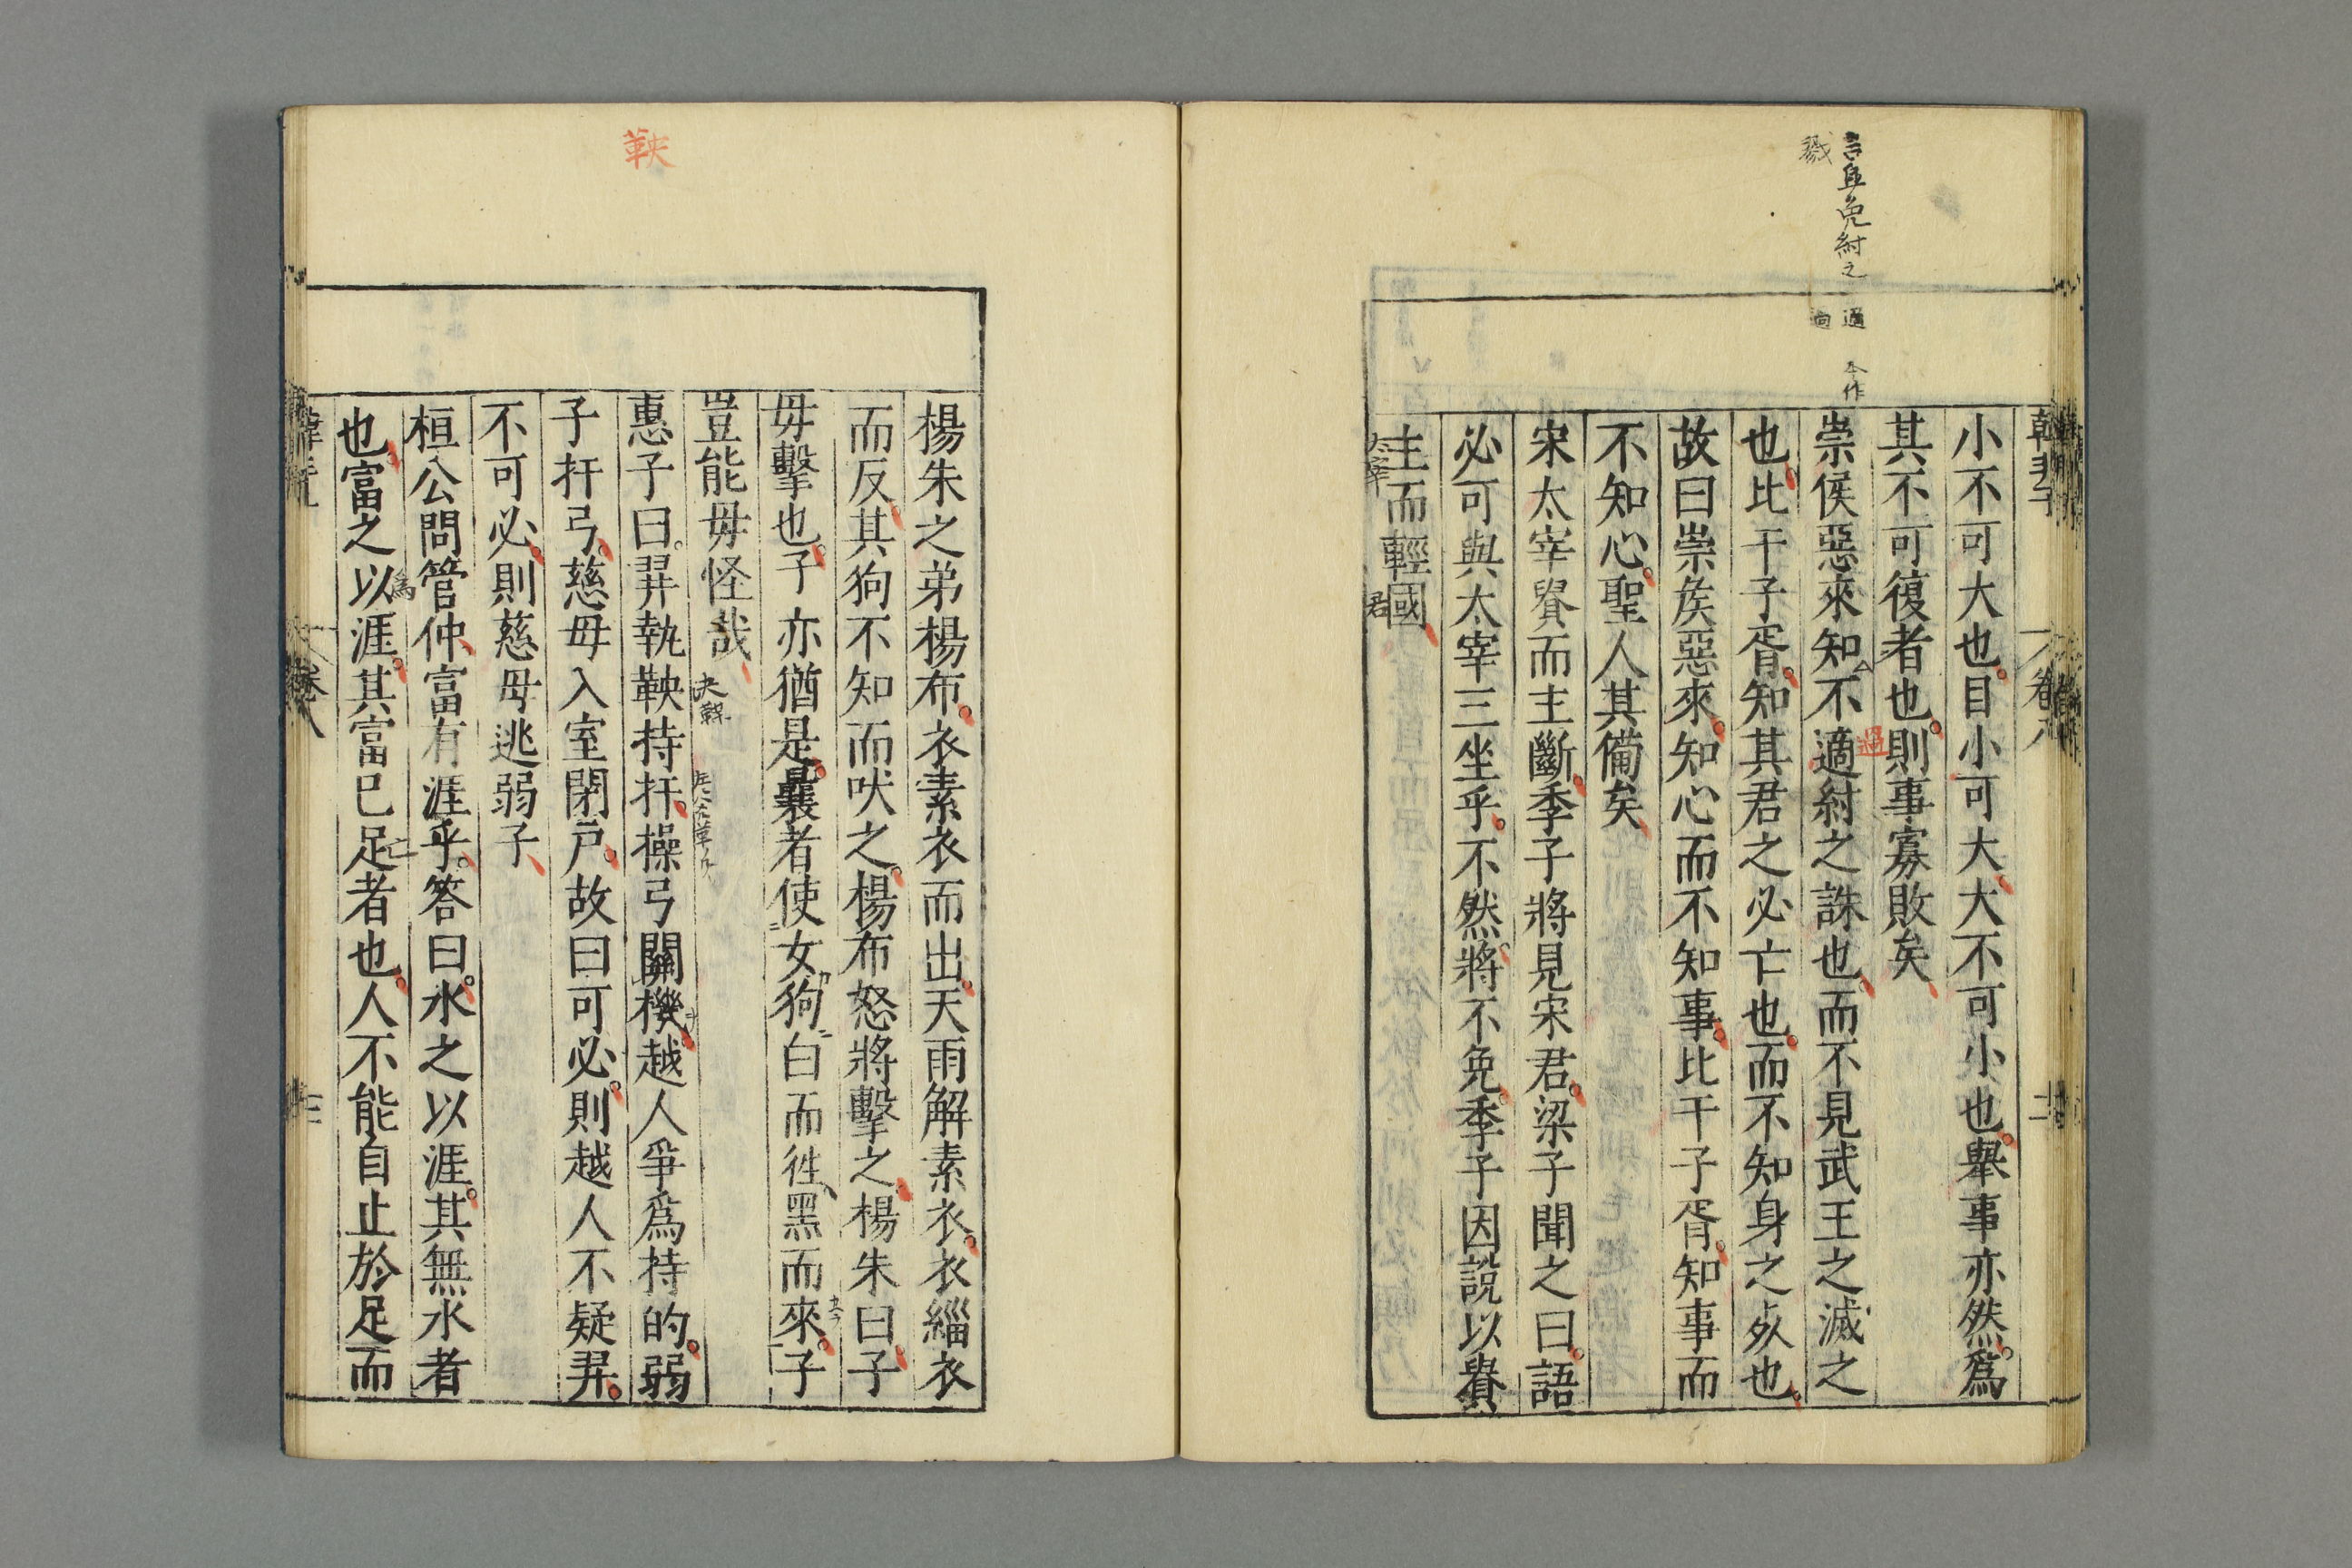 言亟免紂之
戮
適 今作
過
韓非子 卷八 十二
小不可大也目小可大大不可小也舉事亦然爲
其不可復者也則事寡敗矣
崇侯惡來知不適紂之誅也而不見武王之滅之
過
也比干子胥知其君之必亡也而不知身之死也
故曰崇矦惡來知心而不知事比干子胥知事而
不知心聖人其備矣
宋太宰貴而主斷季子將見宋君梁子聞之曰語
必可與太宰三坐乎不然將不免季子因說以貴
主而輕國
太宰
君
鞅
楊朱之弟楊布衣素衣而出天雨解素衣衣緇衣
而反其狗不知而吠之楊布怒將擊之楊朱曰子
毋擊也子亦猶是曩者使女狗白而徃黑而來子
豈能毋怪哉
惠子曰羿執鞅持扞操弓關機越人爭爲持的弱
子扞弓慈母入室閉戸故曰可必則越人不疑羿
不可必則慈母逃弱子
桓公問管仲富有涯乎答曰水之以涯其無水者
爲
也富之以涯其富已足者也人不能自止於足而
亡
卷八